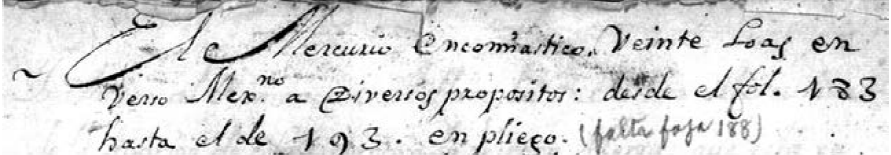 El Mercurio Encomiastico. Veinte Loas en
~ Verso Mex.no a Diversos propositos: desde el fol. 183
hasta el de 193. en pliego. (falta foja 188)